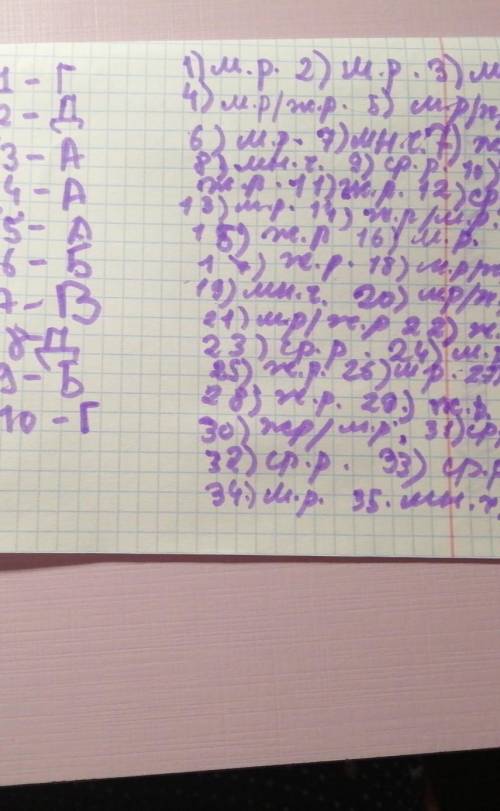 1 - Г
2 - Д
3 - А
4 - А
5 - А
6 - Б
7 - В
8 - Д
9 - Б
10 - Г
1) м.р. 2) м.р. 3) м
4) м.р/ж.р. 5) м.р/ж
6) м.р. 7) мн.ч. 7) ж
8) мн.ч. 9) ср.р. 10)
ж.р. 11) ж.р. 12) ср
13) м.р. 14) ж.р/м.р.
15) ж.р 16) м.р.
17) ж.р. 18) м.р/ж
19) мн.ч. 20) мр/ж
21) м.р/ж.р 22) ж.
23) ср.р. 24) м.
25) ж.р. 26) м.р. 27
28) ж.р. 29.) ж.р.
30) жр/м.р; 31) ср,
32) ср.р. 33) ср.р
34.) м.р. 35. мн.ч,